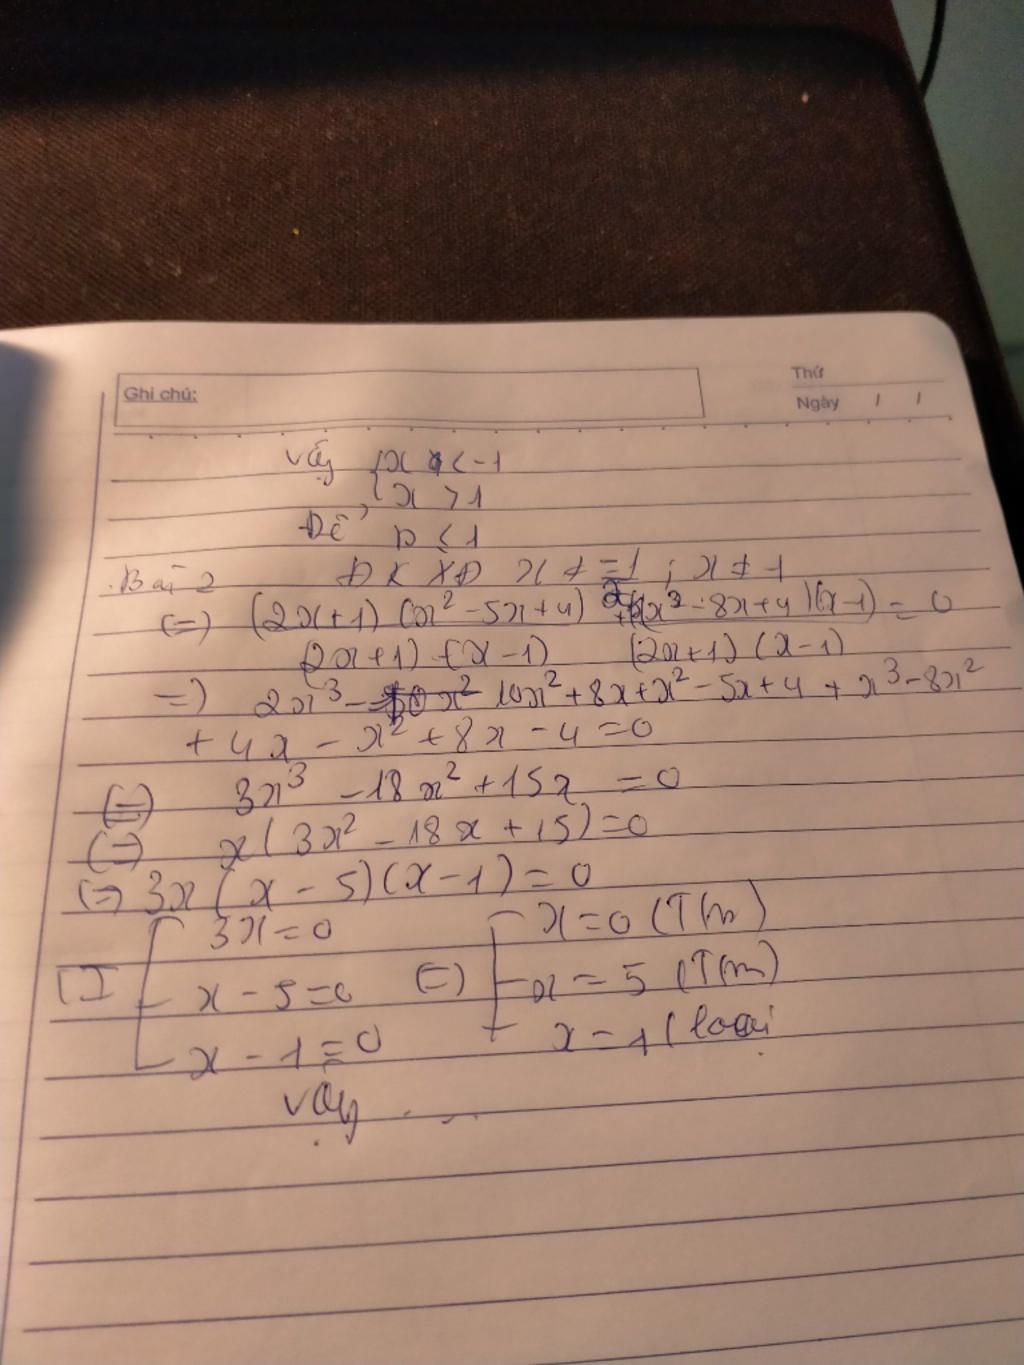 Ghi chú:
Thứ
Ngày / /
Vậy { x < -1
{ x > 1
Để P < 1
Bài 2 ĐKXĐ x ≠ = 1 ; x ≠ 1
(=) (2x+1) (x² - 5x+4) (x² - 8x+4)(x-1) = 0
(2x+1) (x-1) (2x+1) (x-1)
=) 2x³ - 10x² + 8x + x² - 5x + 4 + x³ - 8x²
+ 4x - x² + 8x - 4 = 0
(=) 3x³ - 18x² + 15x = 0
(=) x(3x² - 18x + 15) = 0
(=) 3x (x - 5)(x - 1) = 0
3x = 0 x = 0 (T/m)
x - 5 = 0 (=) x = 5 (T/m)
x - 1 = 0 x = 1 (loại
Vậy ....